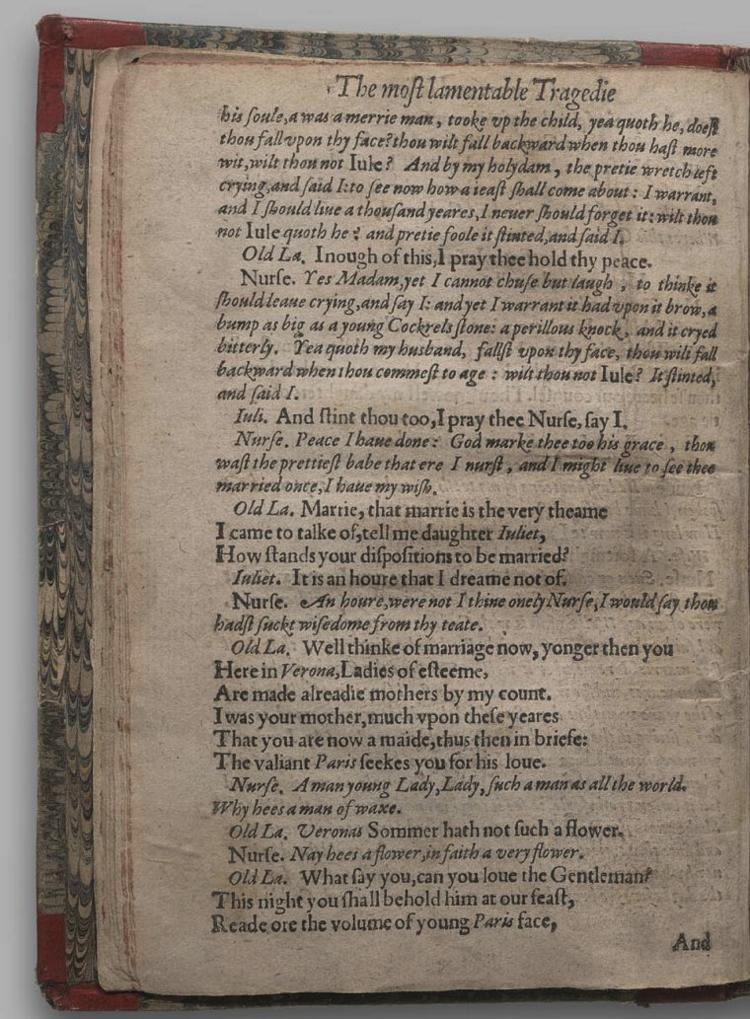 The most lamentable Tragedie
his soule, a was a merrie man, tooke vp the child, yea quoth he, doest
thou fall vpon thy face? thou wilt fall backward when thou hast more
wit, wilt thou not Iule? And by my holydam, the pretie wretch left
crying, and said I: to see now how a ieast shall come about: I warrant,
and I should liue a thousand yeares, I neuer should forget it: wilt thou
not Iule quoth he? and pretie foole it stinted, and said I.
Old La. Inough of this, I pray thee hold thy peace.
Nurse. Yes Madam, yet I cannot chuse but laugh, to thinke it
should leaue crying, and say I: and yet I warrant it had vpon it brow, a
bump as big as a young Cockrels stone: a perillous knock, and it cryed
bitterly. Yea quoth my husband, fallst vpon thy face, thou wilt fall
backward when thou commest to age: wilt thou not Iule? It stinted,
and said I.
Iuli. And stint thou too, I pray thee Nurse, say I.
Nurse. Peace I haue done: God marke thee too his grace, thou
wast the prettiest babe that ere I nurst, and I might liue to see thee
married once, I haue my wish.
Old La. Marrie, that marrie is the very theame
I came to talke of, tell me daughter Iuliet,
How stands your dispositions to be married?
Iuliet. It is an houre that I dreame not of.
Nurse. An houre, were not I thine onely Nurse, I would say thou
hadst suckt wisedome from thy teate.
Old La. Well thinke of marriage now, yonger then you
Here in Verona, Ladies of esteeme,
Are made alreadie mothers by my count.
I was your mother, much vpon these yeares
That you are now a maide, thus then in briefe:
The valiant Paris seekes you for his loue.
Nurse. A man young Lady, Lady, such a man as all the world.
Why hees a man of waxe.
Old La. Veronas Sommer hath not such a flower.
Nurse. Nay hees a flower, in faith a very flower.
Old La. What say you, can you loue the Gentleman?
This night you shall behold him at our feast,
Reade ore the volume of young Paris face,
And